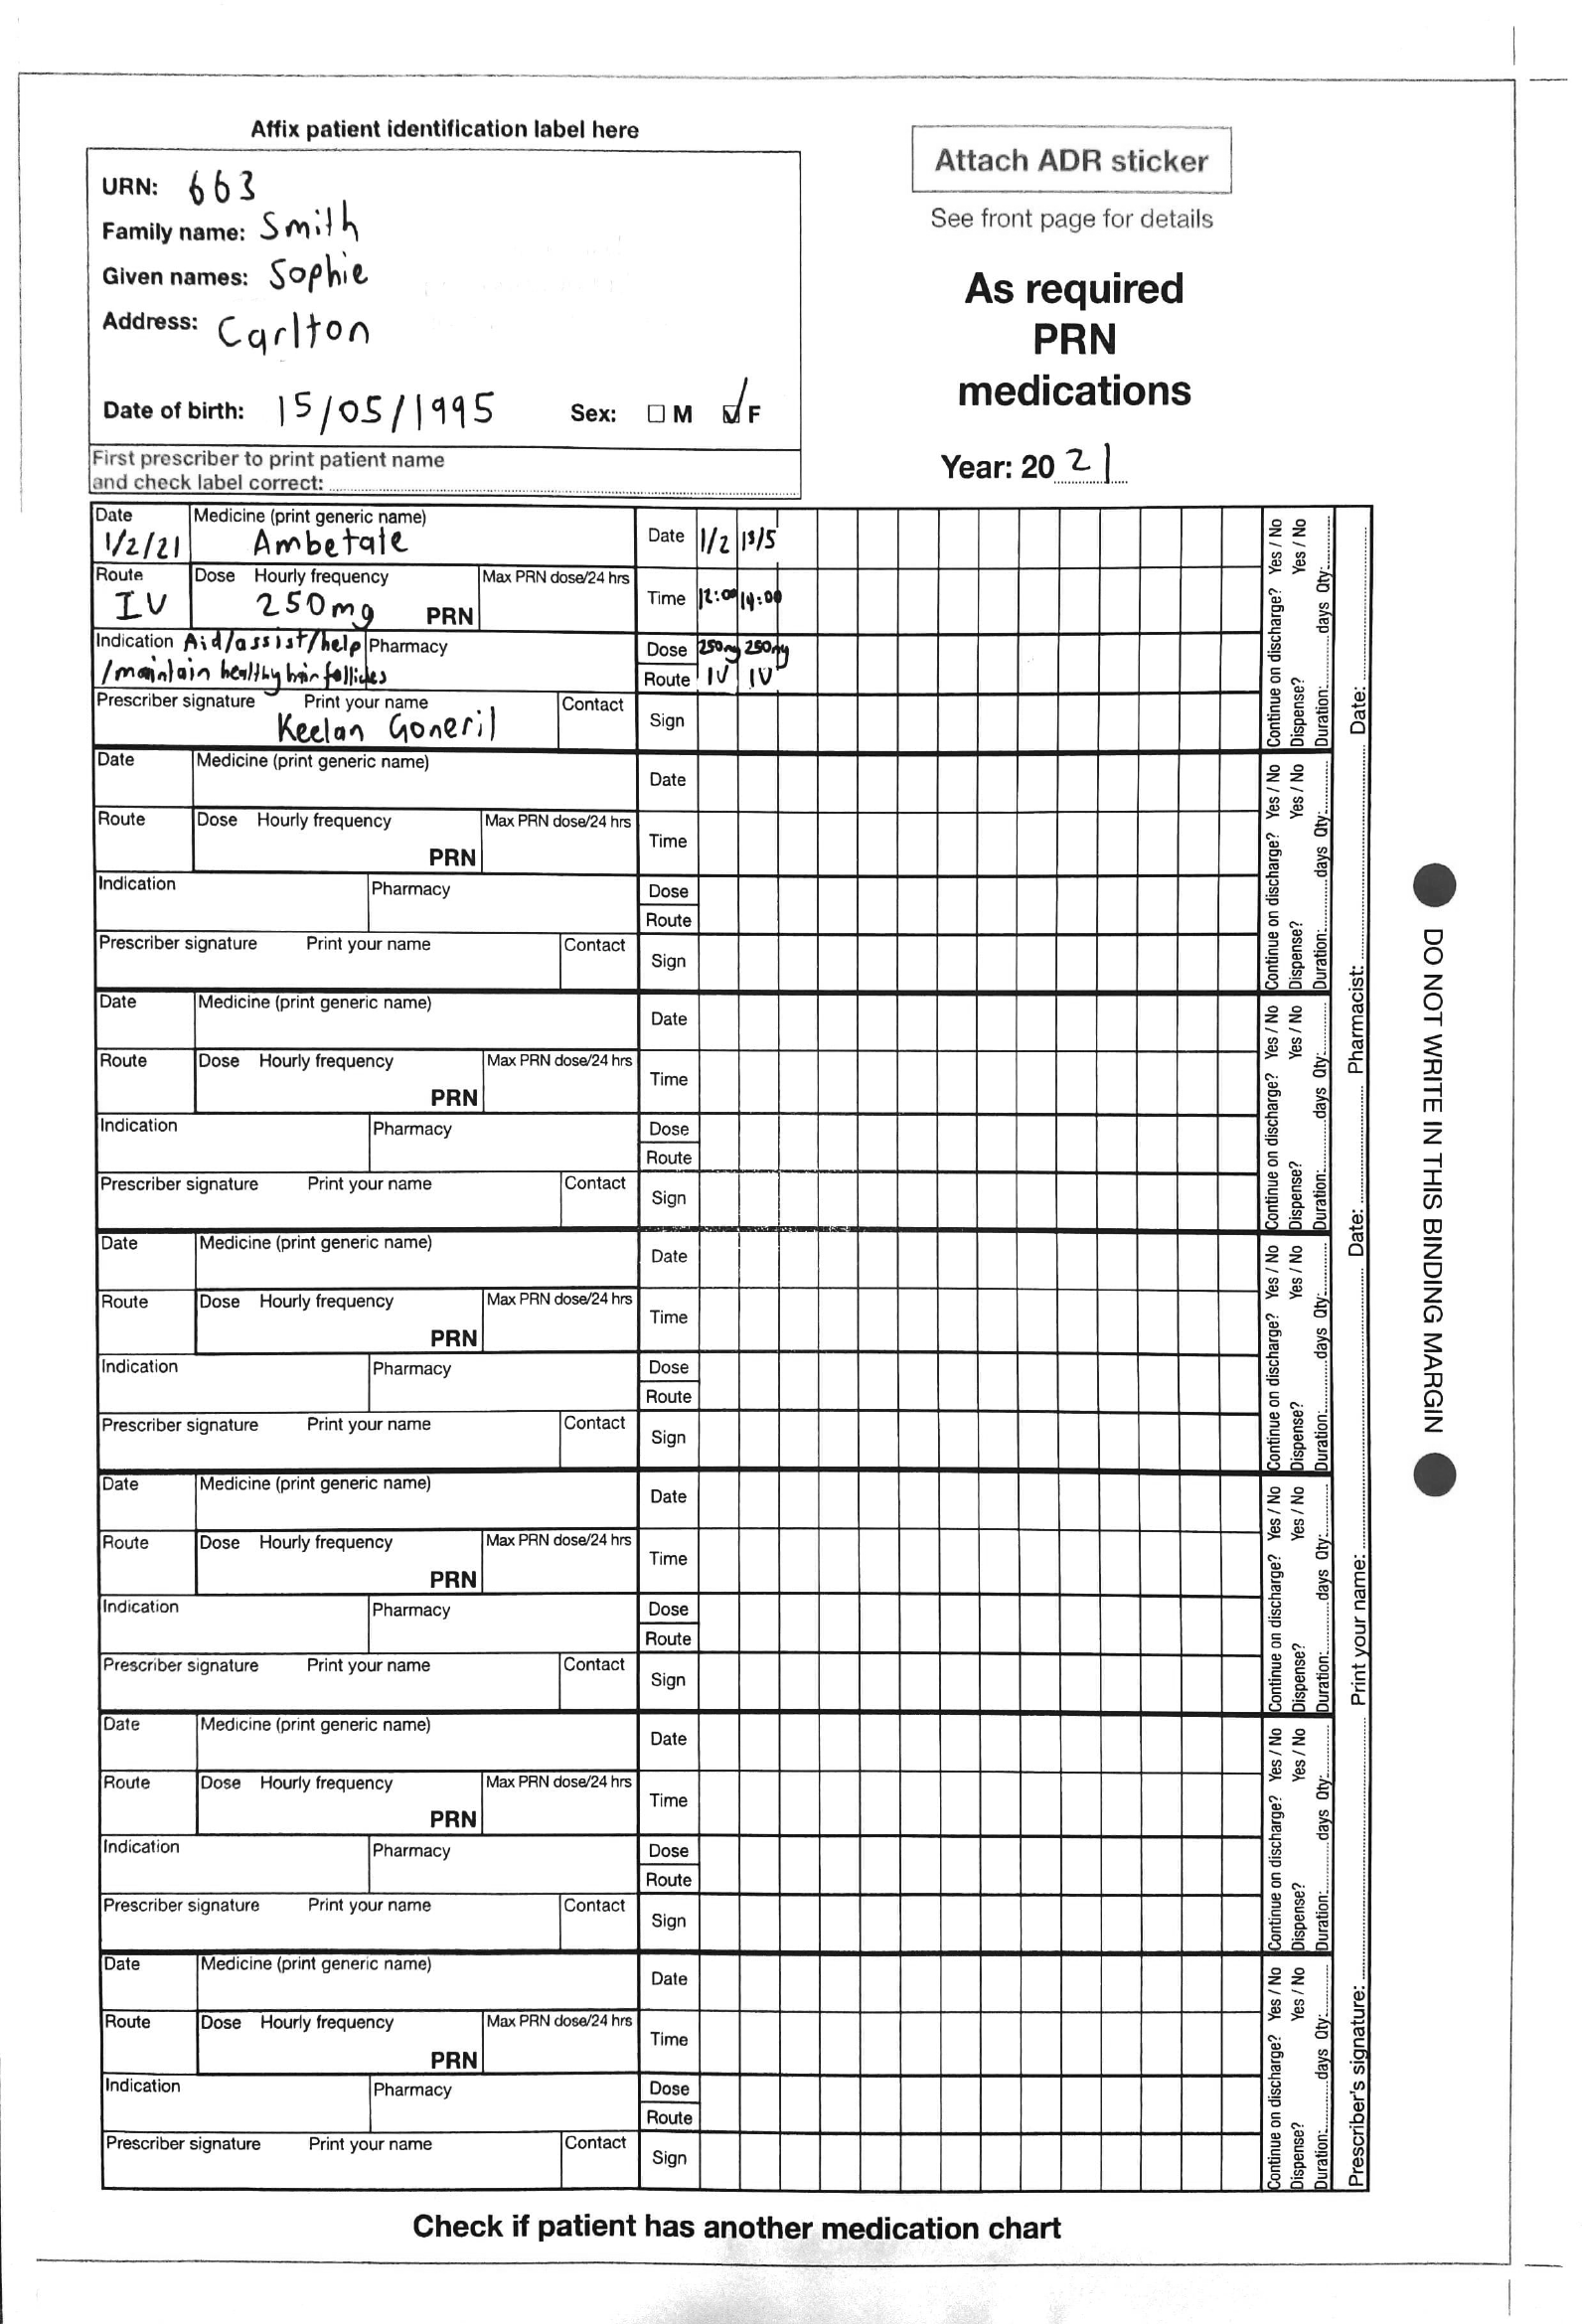 Affix patient identification label here
URN: 663
Family name: Smith
Given names: Sophie
Address: Carlton
Date of birth: 15/05/1995 Sex: M F
First prescriber to print patient name
and check label correct:
Attach ADR sticker
See front page for details
As required
PRN
medications
Year: 20 21
Date Medicine (print generic name)
1/2/21 Ambetate
Date 1/2 13/5
Route Dose Hourly frequency Max PRN dose/24 hrs
IV 250mg PRN
Time 12:00 14:00
Indication Aid/assist/help Pharmacy
/maintain healthy hair follicles
Dose 250mg 250mg
Route IV IV
Prescriber signature Print your name Contact
Keelan Goneril
Sign
Continue on discharge? Yes / No
Dispense? Yes / No
Duration: days Qty:
Date Medicine (print generic name)
Date
Route Dose Hourly frequency Max PRN dose/24 hrs
PRN
Time
Indication Pharmacy
Dose
Route
Prescriber signature Print your name Contact
Sign
Continue on discharge? Yes / No
Dispense? Yes / No
Duration: days Qty:
Date Medicine (print generic name)
Date
Route Dose Hourly frequency Max PRN dose/24 hrs
PRN
Time
Indication Pharmacy
Dose
Route
Prescriber signature Print your name Contact
Sign
Continue on discharge? Yes / No
Dispense? Yes / No
Duration: days Qty:
Date Medicine (print generic name)
Date
Route Dose Hourly frequency Max PRN dose/24 hrs
PRN
Time
Indication Pharmacy
Dose
Route
Prescriber signature Print your name Contact
Sign
Continue on discharge? Yes / No
Dispense? Yes / No
Duration: days Qty:
Date Medicine (print generic name)
Date
Route Dose Hourly frequency Max PRN dose/24 hrs
PRN
Time
Indication Pharmacy
Dose
Route
Prescriber signature Print your name Contact
Sign
Continue on discharge? Yes / No
Dispense? Yes / No
Duration: days Qty:
Date Medicine (print generic name)
Date
Route Dose Hourly frequency Max PRN dose/24 hrs
PRN
Time
Indication Pharmacy
Dose
Route
Prescriber signature Print your name Contact
Sign
Continue on discharge? Yes / No
Dispense? Yes / No
Duration: days Qty:
Date Medicine (print generic name)
Date
Route Dose Hourly frequency Max PRN dose/24 hrs
PRN
Time
Indication Pharmacy
Dose
Route
Prescriber signature Print your name Contact
Sign
Continue on discharge? Yes / No
Dispense? Yes / No
Duration: days Qty:
Prescriber's signature: Print your name: Date: Pharmacist: Date:
DO NOT WRITE IN THIS BINDING MARGIN
Check if patient has another medication chart